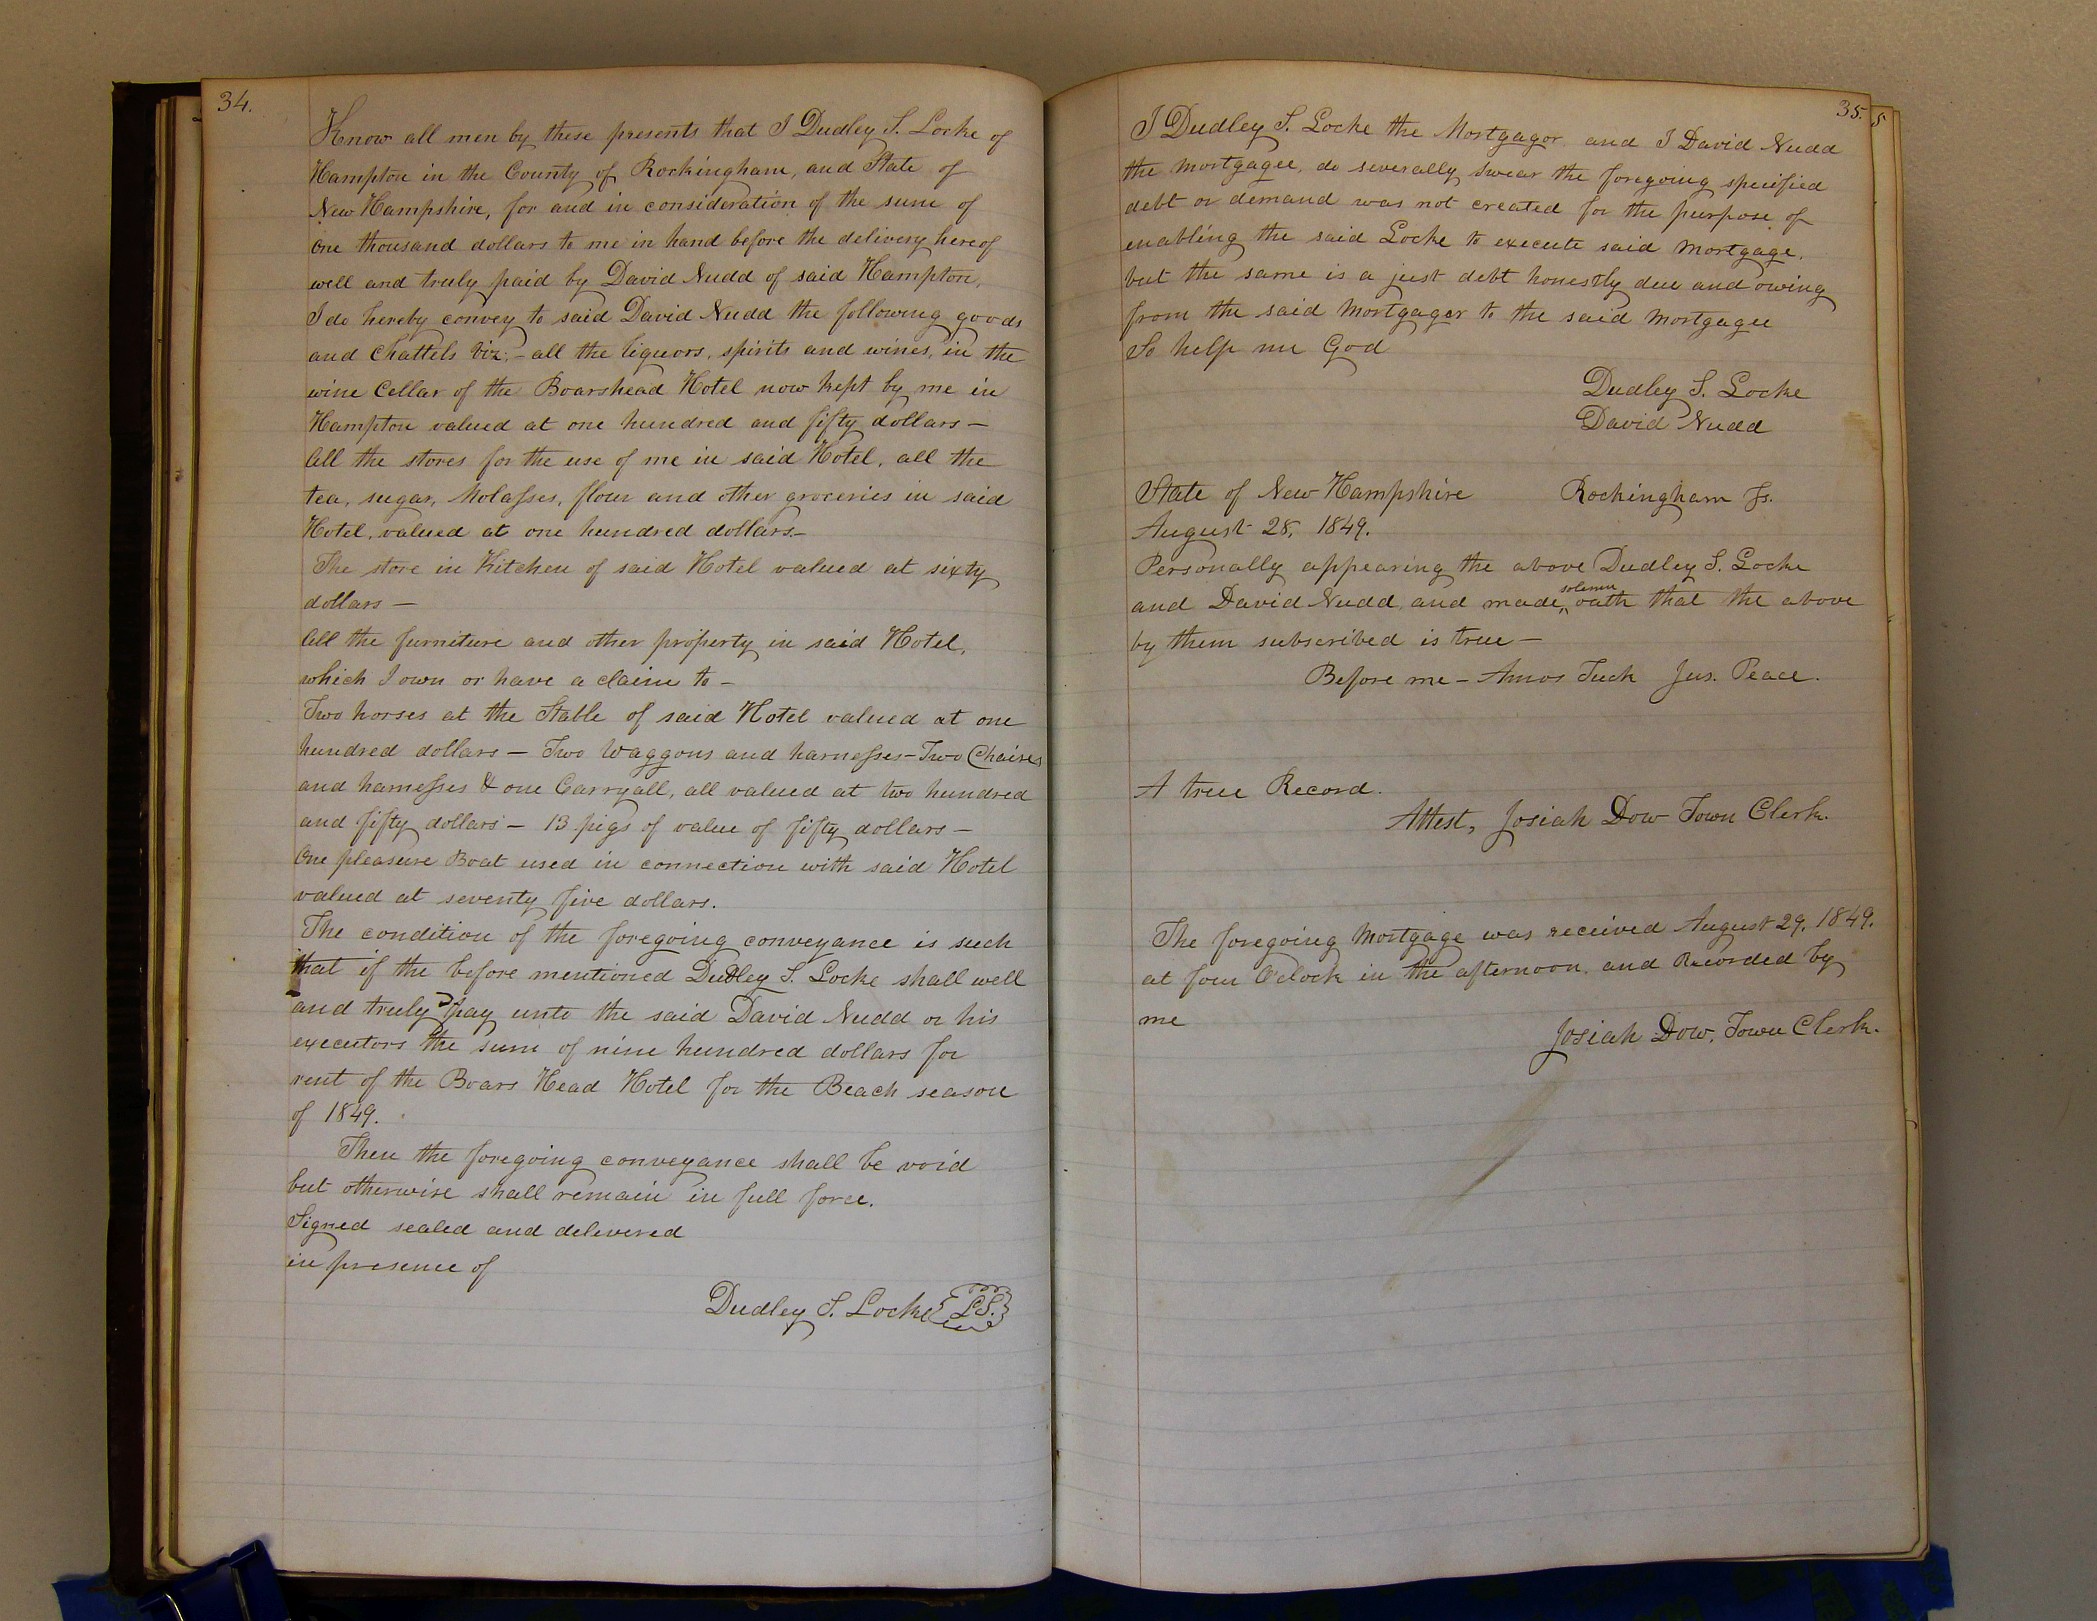 34.
Know all men by these presents that I Dudley S. Locke of
Hampton in the County of Rockingham, and State of
New Hampshire, for and in consideration of the sum of
one thousand dollars to me in hand before the delivery hereof
well and truly paid by David Nudd of said Hampton,
I do hereby convey to said David Nudd the following goods
and Chattels viz; - all the liquors, spirits and wines, in the
wine Cellar of the Boarshead Hotel now kept by me in
Hampton valued at one hundred and fifty dollars -
All the stores for the use of me in said Hotel, all the
tea, sugar, Molasses, flour and other groceries in said
Hotel, valued at one hundred dollars.-
The stove in Kitchen of said Hotel valued at sixty
dollars -
All the furniture and other property in said Hotel,
which I own or have a claim to -
Two horses at the Stable of said Hotel valued at one
hundred dollars - Two Waggons and harnesses - Two Chaises
and harnesses & one Carryall, all valued at two hundred
and fifty dollars - 13 pigs of value of fifty dollars -
One pleasure Boat used in connection with said Hotel
valued at seventy five dollars.
The condition of the foregoing conveyance is such
that if the before mentioned Dudley S. Locke shall well
and truly pay unto the said David Nudd or his
executors the sum of nine hundred dollars for
rent of the Boars Head Hotel for the Beach season
of 1849.
Then the foregoing conveyance shall be void
but otherwise shall remain in full force.
Signed sealed and delivered
in presence of
Dudley S. Locke L.S.
35.
5
I Dudley S. Locke the Mortgagor and I David Nudd
the mortgagee, do severally swear the foregoing specified
debt or demand was not created for the purpose of
enabling the said Locke to execute said mortgage,
but the same is a just debt honestly due and owing
from the said Mortgagor to the said Mortgagee
So help me God
Dudley S. Locke
David Nudd
State of New Hampshire Rockingham Ss.
August 28, 1849.
Personally appearing the above Dudley S. Locke
and David Nudd, and made solemn oath that the above
by them subscribed is true -
Before me - Amos Tuck Jus. Peace.
A true Record.
Attest, Josiah Dow Town Clerk.
The foregoing Mortgage was received August 29, 1849.
at four O'clock in the afternoon, and Recorded by
me
Josiah Dow, Town Clerk.